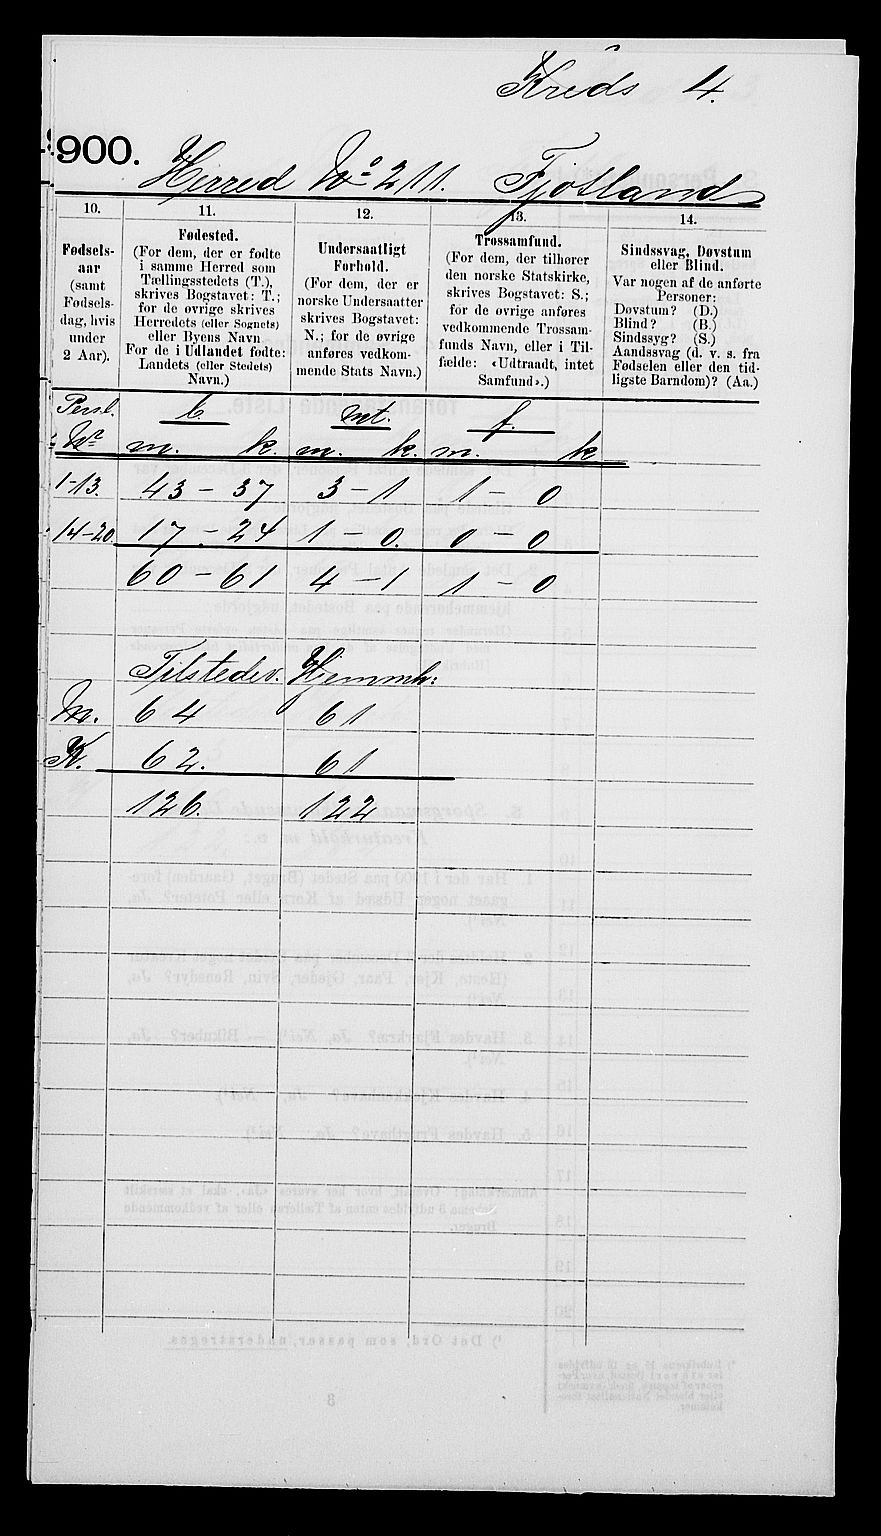 Kreds 4.
900.
Herred No 211. Fjotland
10.
Fødsels-
aar
(samt
Fødsels-
dag, hvis
under
2 Aar).
11.
Fødested.
(For dem, der er fødte
i samme Herred som
Tællingsstedets (T.),
skrives Bogstavet: T.;
for de øvrige skrives
Herredets (eller Sognets)
eller Byens Navn
For de i Udlandet fødte:
Landets (eller Stedets)
Navn.)
12.
Undersaatligt
Forhold.
(For dem, der er
norske Undersaatter
skrives Bogstavet:
N.; for de øvrige
anføres vedkom-
mende Stats Navn.)
13.
Trossamfund.
(For dem, der tilhører
den norske Statskirke,
skrives Bogstavet: S.;
for de øvrige anføres
vedkommende Trossam-
funds Navn, eller i Til-
fælde: «Udtraadt, intet
Samfund».)
14.
Sindssvag, Døvstum
eller Blind.
Var nogen af de anførte
Personer:
Døvstum? (D.)
Blind? (B.)
Sindssyg? (S.)
Aandssvag (d. v. s. fra
Fødselen eller den tid-
ligste Barndom)? (Aa.)
Persl. b. mt. f.
No m. k. m. k. m. k
1-13. 43 - 37 3 - 1 1 - 0
14-20. 17 - 24 1 - 0. 0 - 0
60 - 61 4 - 1 1 - 0
Tilstedev. Hjemmh:
M. 64 61
K. 62. 61
126. 122